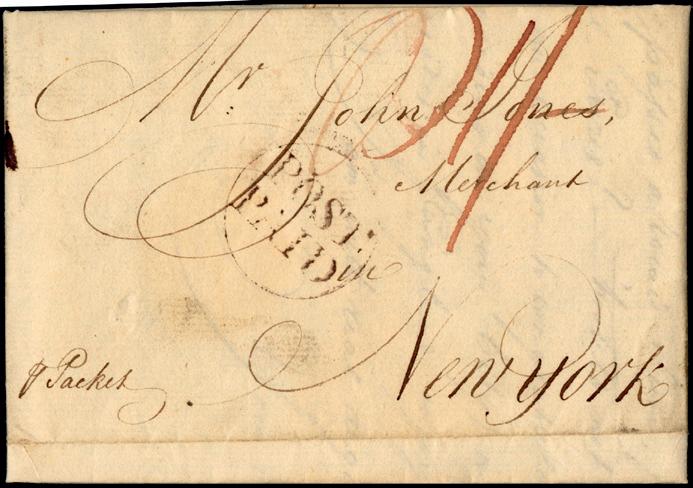 Mr. John Jones,
Merchant
POST
PAID
in
New York
⅌ Packet